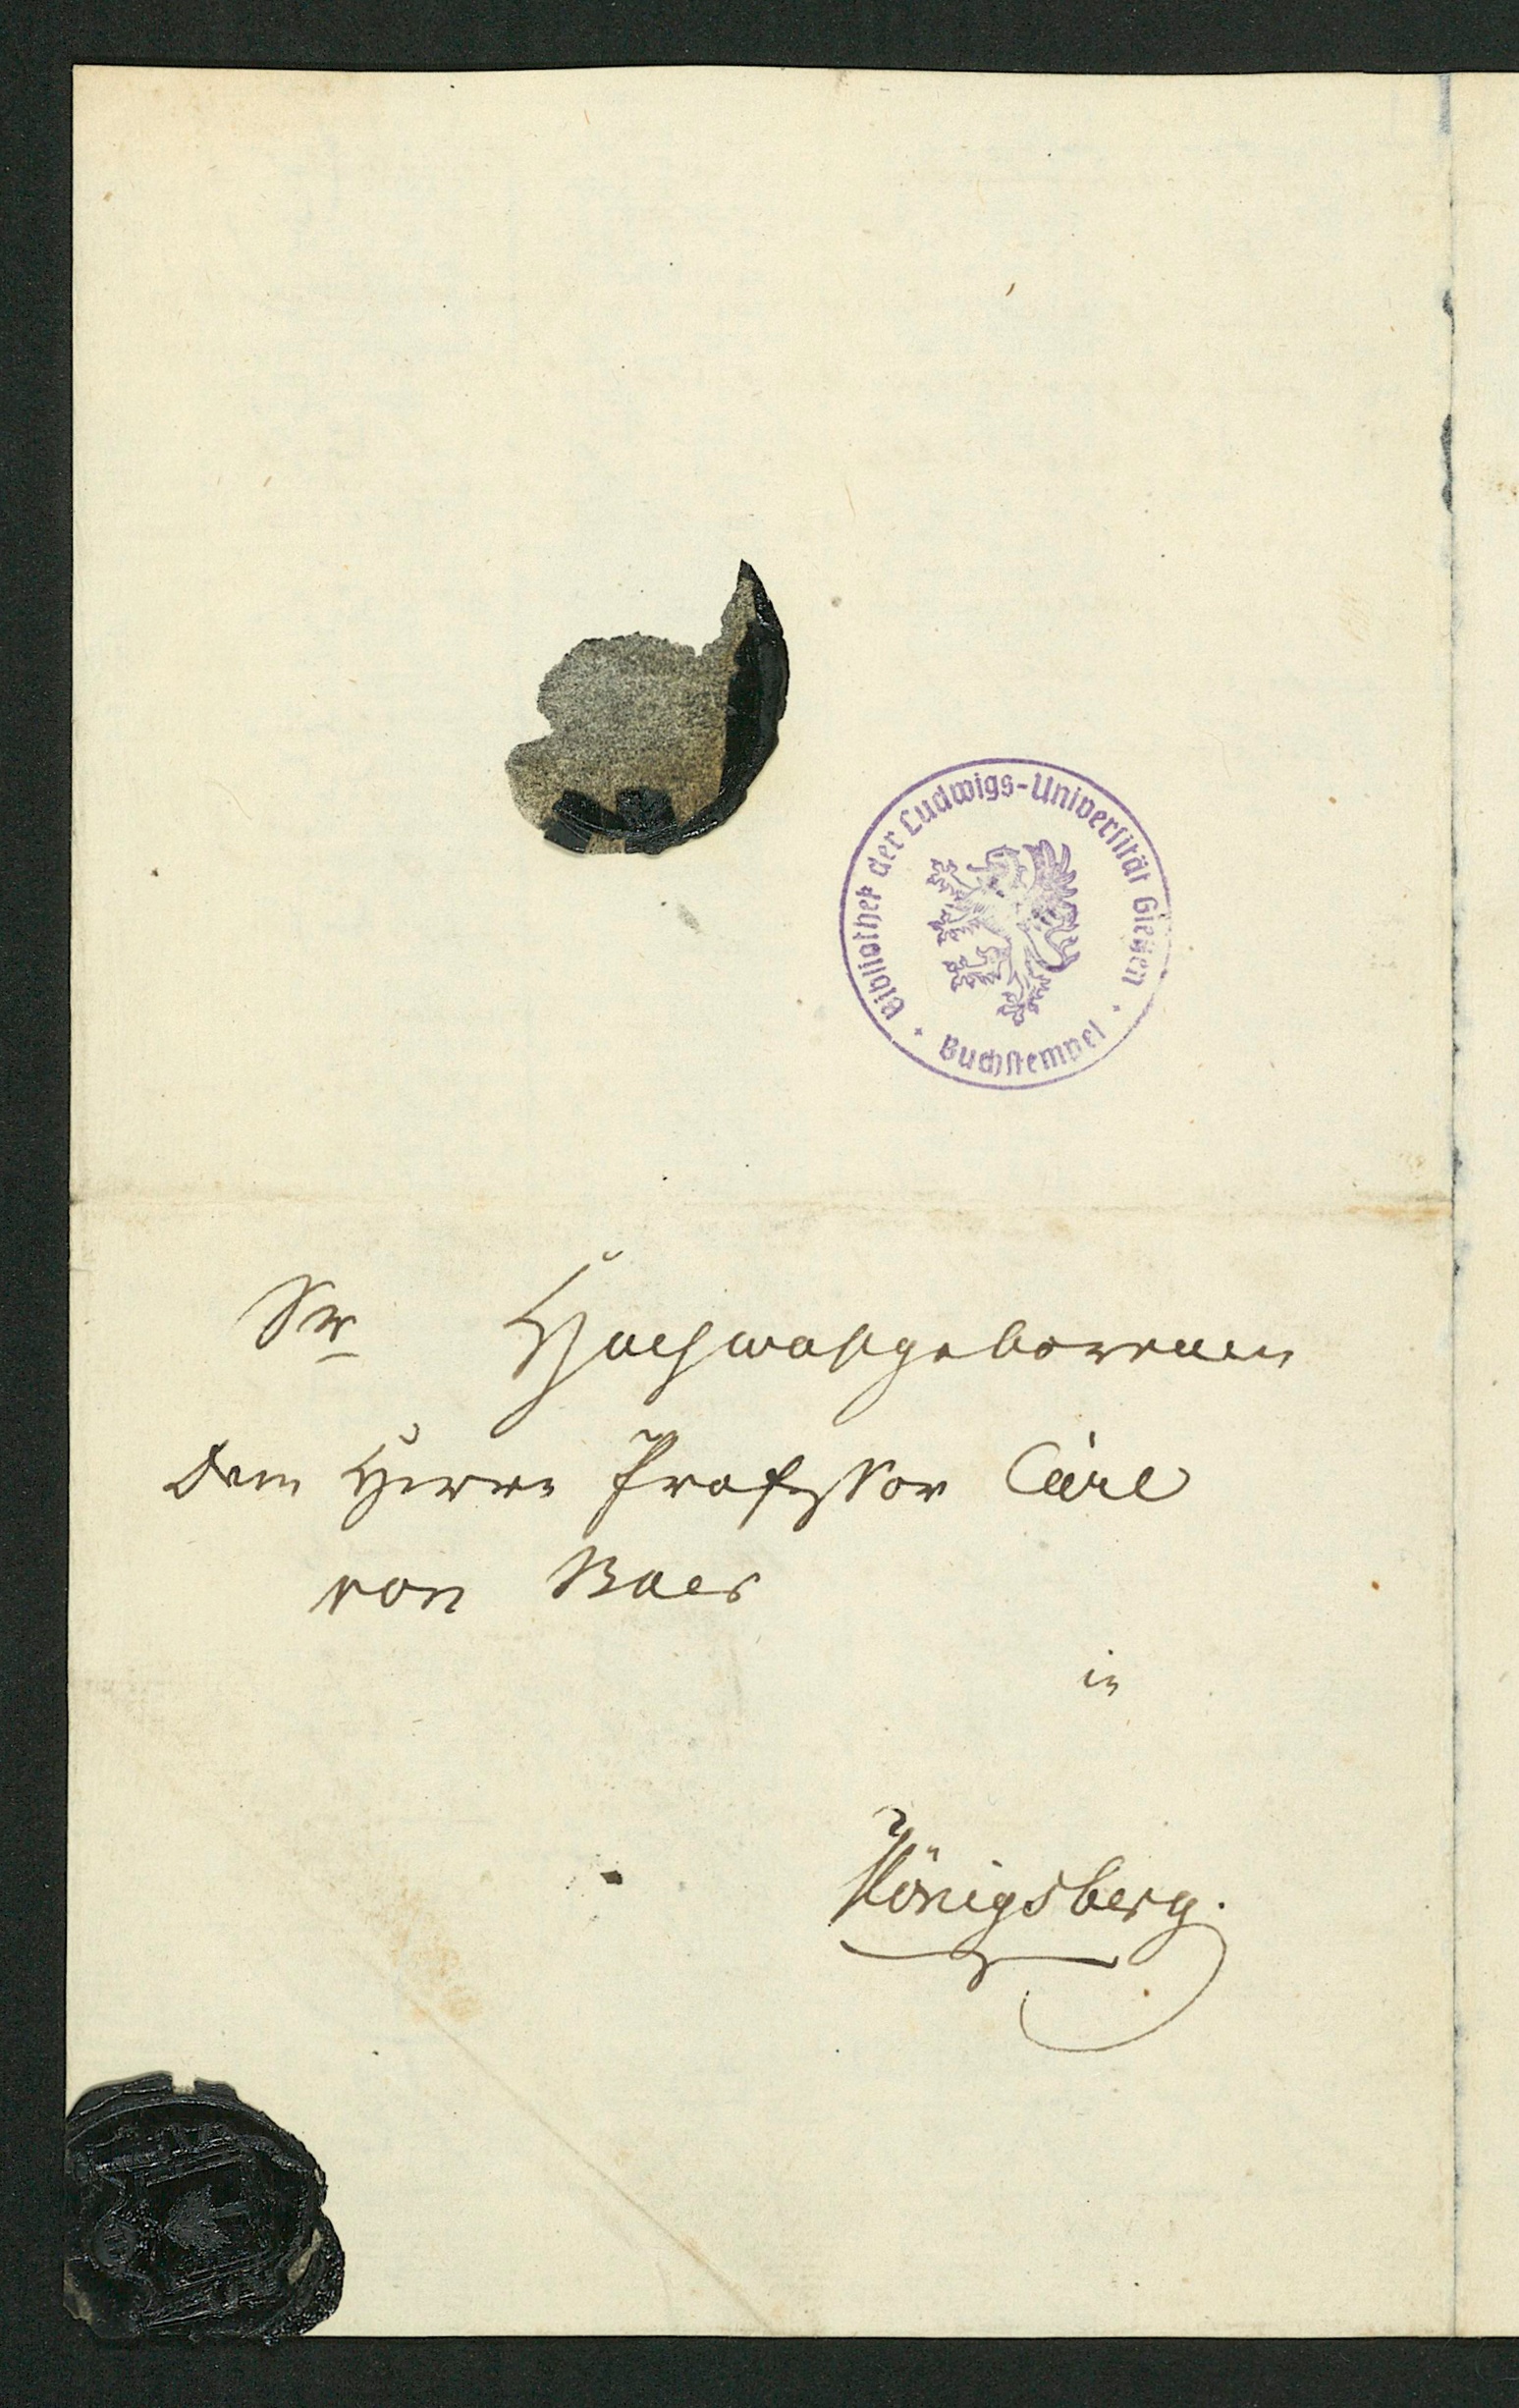 Bibliothek der Ludwigs-Universität Gießen
Buchstempel
Sr Hochwohlgeborenen
dem Herrn Professor Carl
von Baer
in
Königsberg.